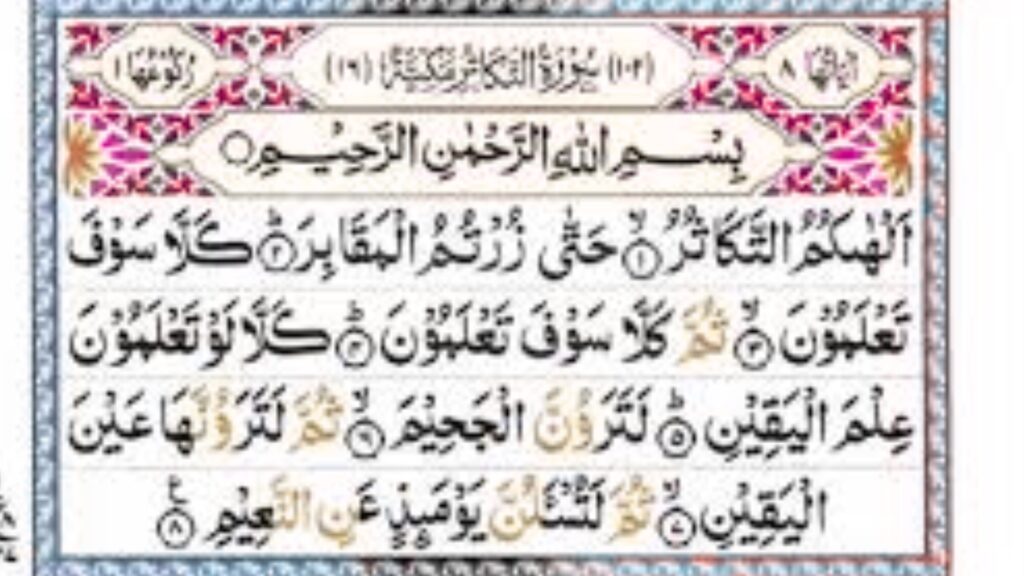 اٰيَاتُهَا ٨ (١٠٢) سُوْرَةُ التَّكَاثُرِ مَكِّيَّةٌ (١٦) رُكُوْعُهَا ١
بِسْمِ اللهِ الرَّحْمٰنِ الرَّحِيْمِ
اَلْهٰىكُمُ التَّكَاثُرُ ۙ ١ حَتّٰى زُرْتُمُ الْمَقَابِرَ ؕ ٢ كَلَّا سَوْفَ
تَعْلَمُوْنَ ۙ ٣ ثُمَّ كَلَّا سَوْفَ تَعْلَمُوْنَ ؕ ٤ كَلَّا لَوْ تَعْلَمُوْنَ
عِلْمَ الْيَقِيْنِ ؕ ٥ لَتَرَوُنَّ الْجَحِيْمَ ۙ ٦ ثُمَّ لَتَرَوُنَّهَا عَيْنَ
الْيَقِيْنِ ۙ ٧ ثُمَّ لَتُسْـَٔلُنَّ يَوْمَىِٕذٍ عَنِ النَّعِيْمِ ٨